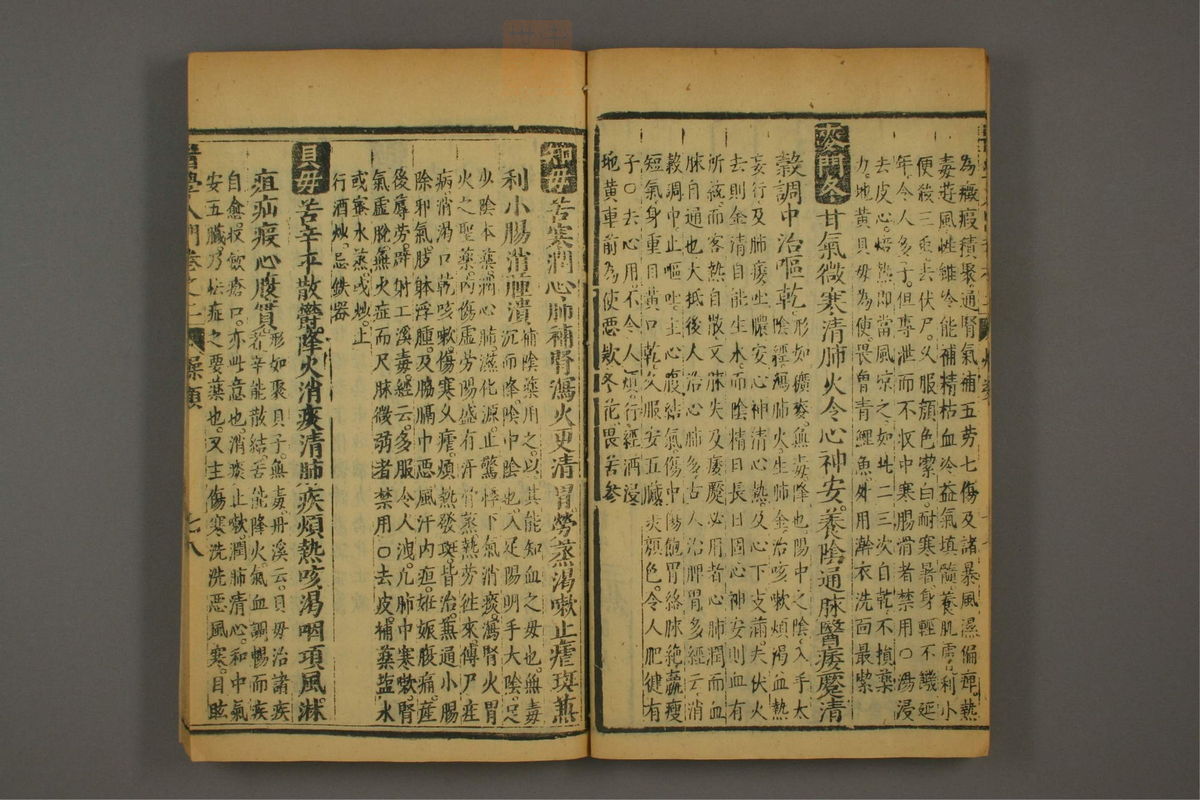 為癥瘕積聚通腎氣補五勞七傷及諸暴風濕偏痺熱
毒遊風性雖冷能補精枯血冷益氣填髓養肌膚利小
便後三更去伏尸久服顏色潔白耐寒暑身輕不饑延
年令人多子但專泄而不收中寒腸滑者禁用〇湯浸
去皮心焙熱即當風凉之如此二三次自乾不損藥
力地黄貝毋為使畏魯青鯉魚外用澣衣洗面最
麥門冬甘氣微寒清肺火令心神安養陰通脉醫痿魘清
穀調中治嘔乾形如穬麥無毒降也陽中之陰入手太
陰經瀉肺火生肺金治咳嗽煩渴血熱
妄行及肺痿吐膿安心神清心熱及心下支滿夫伏火
去則金清自能生水而陰精日長日固心神安則血有
所統而客熱自散又脉失及痿魘必用者心肺潤而血
脉自通也大抵後人治心肺多古人治脾胃多經云消
穀調中止嘔吐主心腹結氣傷中傷飽胃絡脉絶羸瘦
短氣身重目黄口乾久服安五臟美顏色令人肥健有
子〇去心用不令人煩行經酒浸
地黄車前為使惡欵冬花畏苦參
知毋苦寒潤心肺補腎瀉火更清胃勞蒸渴嗽止瘧斑兼
利小腸消腫潰補陰藥用之以其能知血之毋也無毒
沉而降陰中陰也入足陽明手大陰足
少陰本藥潤心肺滋化源止驚悸下氣消痰瀉腎火胃
火之聖藥内傷虚勞陽盛有汗骨蒸熱勞往來傳尸産
病消渴口乾咳嗽傷寒久瘧煩熱發斑皆治兼通小腸
除邪氣肢躰浮腫及膈中惡風汗内疸妊娠腹痛産
後蓐勞辟射工溪毒經云多服令人洩凡肺中寒嗽腎
氣虚脫無火症而尺脉微弱者禁用〇去皮補藥塩水
或蜜水蒸或炒上
行酒炒忌鉄器
貝毋苦辛平散鬱降火消痰清肺疾煩熱咳渴咽項風淋
疽疝瘕心腹質形如聚貝子無毒丹溪云貝毋治諸疾
者辛能散結苦能降火氣血調暢而疾
自愈投飲瘡口亦此意也消痰止嗽潤肺清心和中氣
安五臟乃怯症之要藥也又主傷寒洗洗惡風寒目眩
醫學入門卷之二 燥類 七八